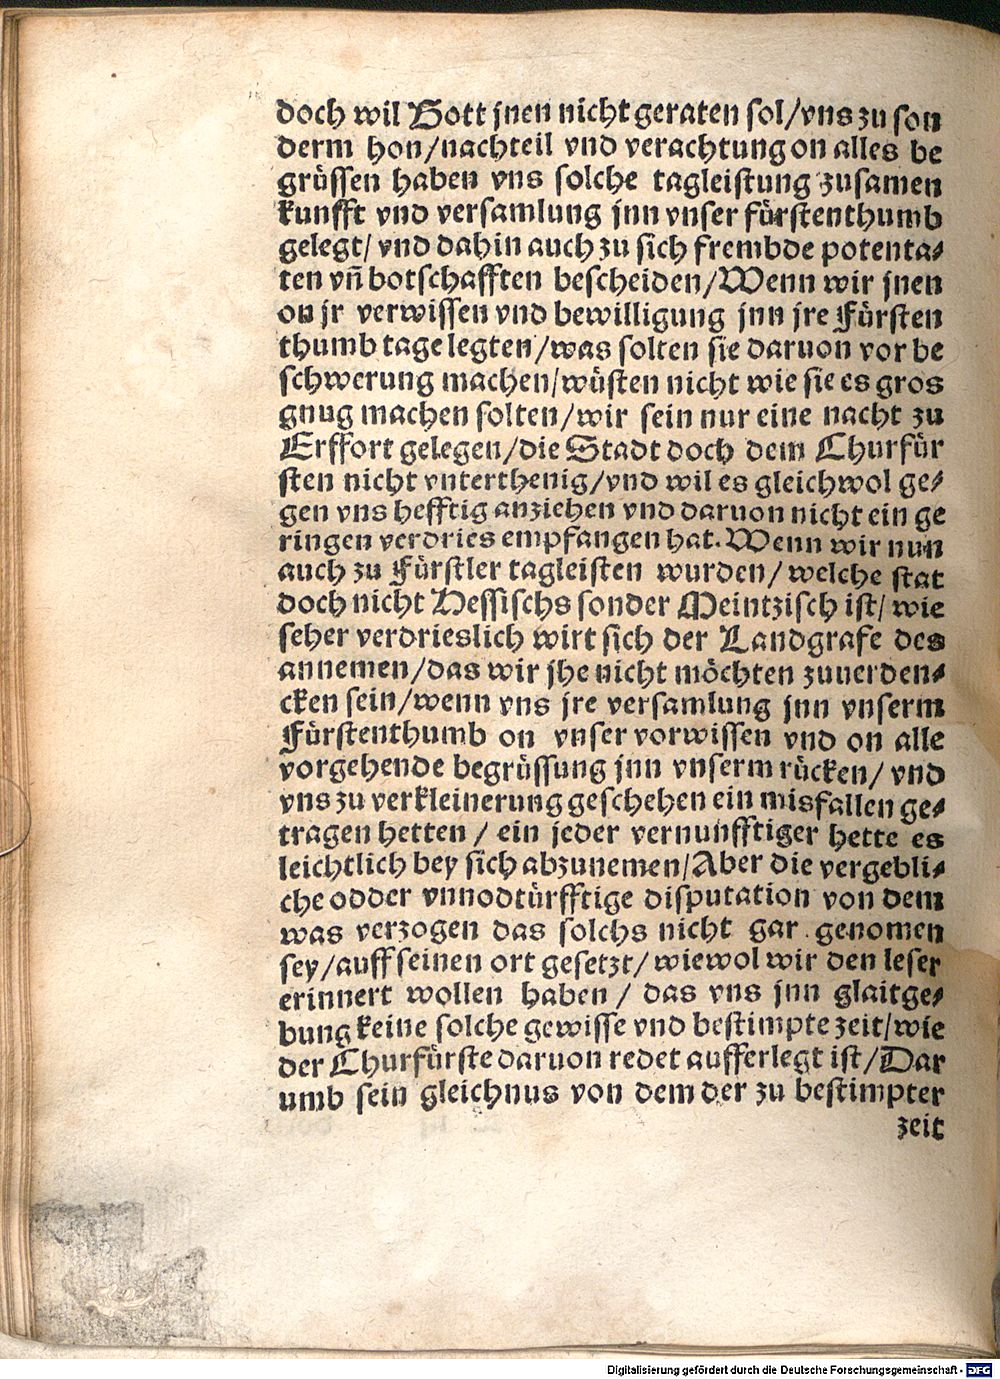 doch wil Gott jnen nicht geraten sol/vns zu son
derm hon/nachteil vnd verachtung on alles be
grüssen haben vns solche tagleistung zusamen
kunfft vnd versamlung jnn vnser fürstenthumb
gelegt/ vnd dahin auch zu sich frembde potenta⸗
ten vñ botschafften bescheiden/Wenn wir jnen
on jr verwissen vnd bewilligung jnn jre Fürsten
thumb tage legten/was solten sie daruon vor be
schwerung machen/wüsten nicht wie sie es gros
gnug machen solten/wir sein nur eine nacht zu
Erffort gelegen/die Stadt doch dem Churfür
sten nicht vnterthenig/vnd wil es gleichwol ge⸗
gen vns hefftig anziehen vnd daruon nicht ein ge
ringen verdries empfangen hat. Wenn wir nun
auch zu Fürstler tagleisten wurden/ welche stat
doch nicht Hessischs sonder Meintzisch ist/ wie
seher verdrieslich wirt sich der Landgrafe des
annemen/das wir jhe nicht möchten zuuerden⸗
cken sein/wenn vns jre versamlung jnn vnserm
Fürstenthumb on vnser vorwissen vnd on alle
vorgehende begrüssung jnn vnserm rücken/ vnd
vns zu verkleinerung geschehen ein misfallen ge⸗
tragen hetten / ein jeder vernunfftiger hette es
leichtlich bey sich abzunemen/Aber die vergebli⸗
che odder vnnodtürfftige disputation von dem
was verzogen das solchs nicht gar genomen
sey/auff seinen ort gesetzt/ wiewol wir den leser
erinnert wollen haben / das vns jnn glaitge⸗
bung keine solche gewisse vnd bestimpte zeit/wie
der Churfürste daruon redet aufferlegt ist/Dar
umb sein gleichnus von dem der zu bestimpter
zeit
Digitalisierung gefördert durch die Deutsche Forschungsgemeinschaft - DFG